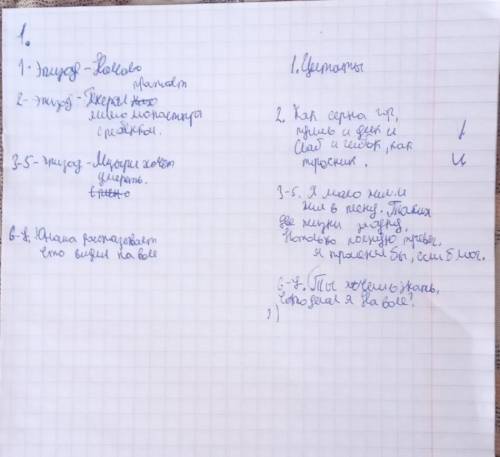 1.
1- Эпизод - Начало
2- эпизод - Генерал проезжает
мимо монастыря
с ребёнком.
3-5- эпизод - Мцыри хочет
умереть.
6-7. Юноша рассказывает
что видел на воле
1. Цитаты
2. Как серна гор,
пуглив и дик и
Слаб и гибок, как
тросник.
3-5. Я мало жил и
жил в плену. Таких
две жизни за одну,
Но только полную тревог.
Я променял бы, если б мог.
6-7. Ты хочешь знать,
что делал я на воле?